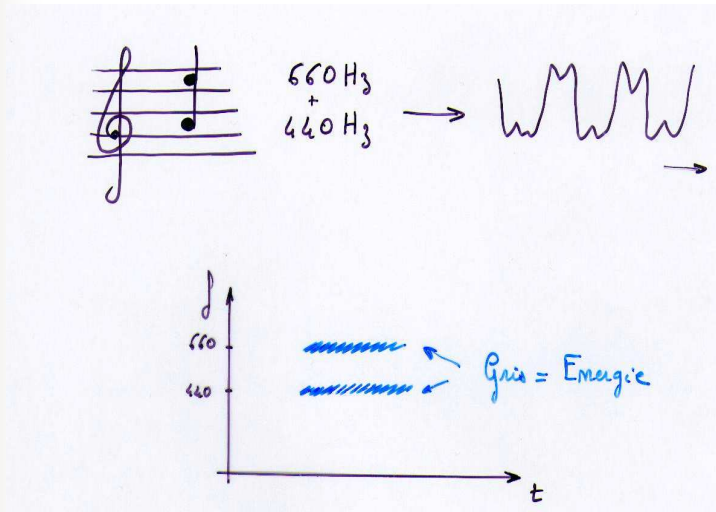 660 Hz
+
440 Hz
f
660
440
Gris = Energie
t